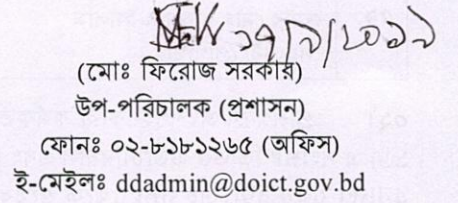 ১৭/৯/২০১৯
(মোঃ ফিরোজ সরকার)
উপ-পরিচালক (প্রশাসন)
ফোনঃ ০২-৮১৮১২৬৫ (অফিস)
ই-মেইলঃ ddadmin@doict.gov.bd